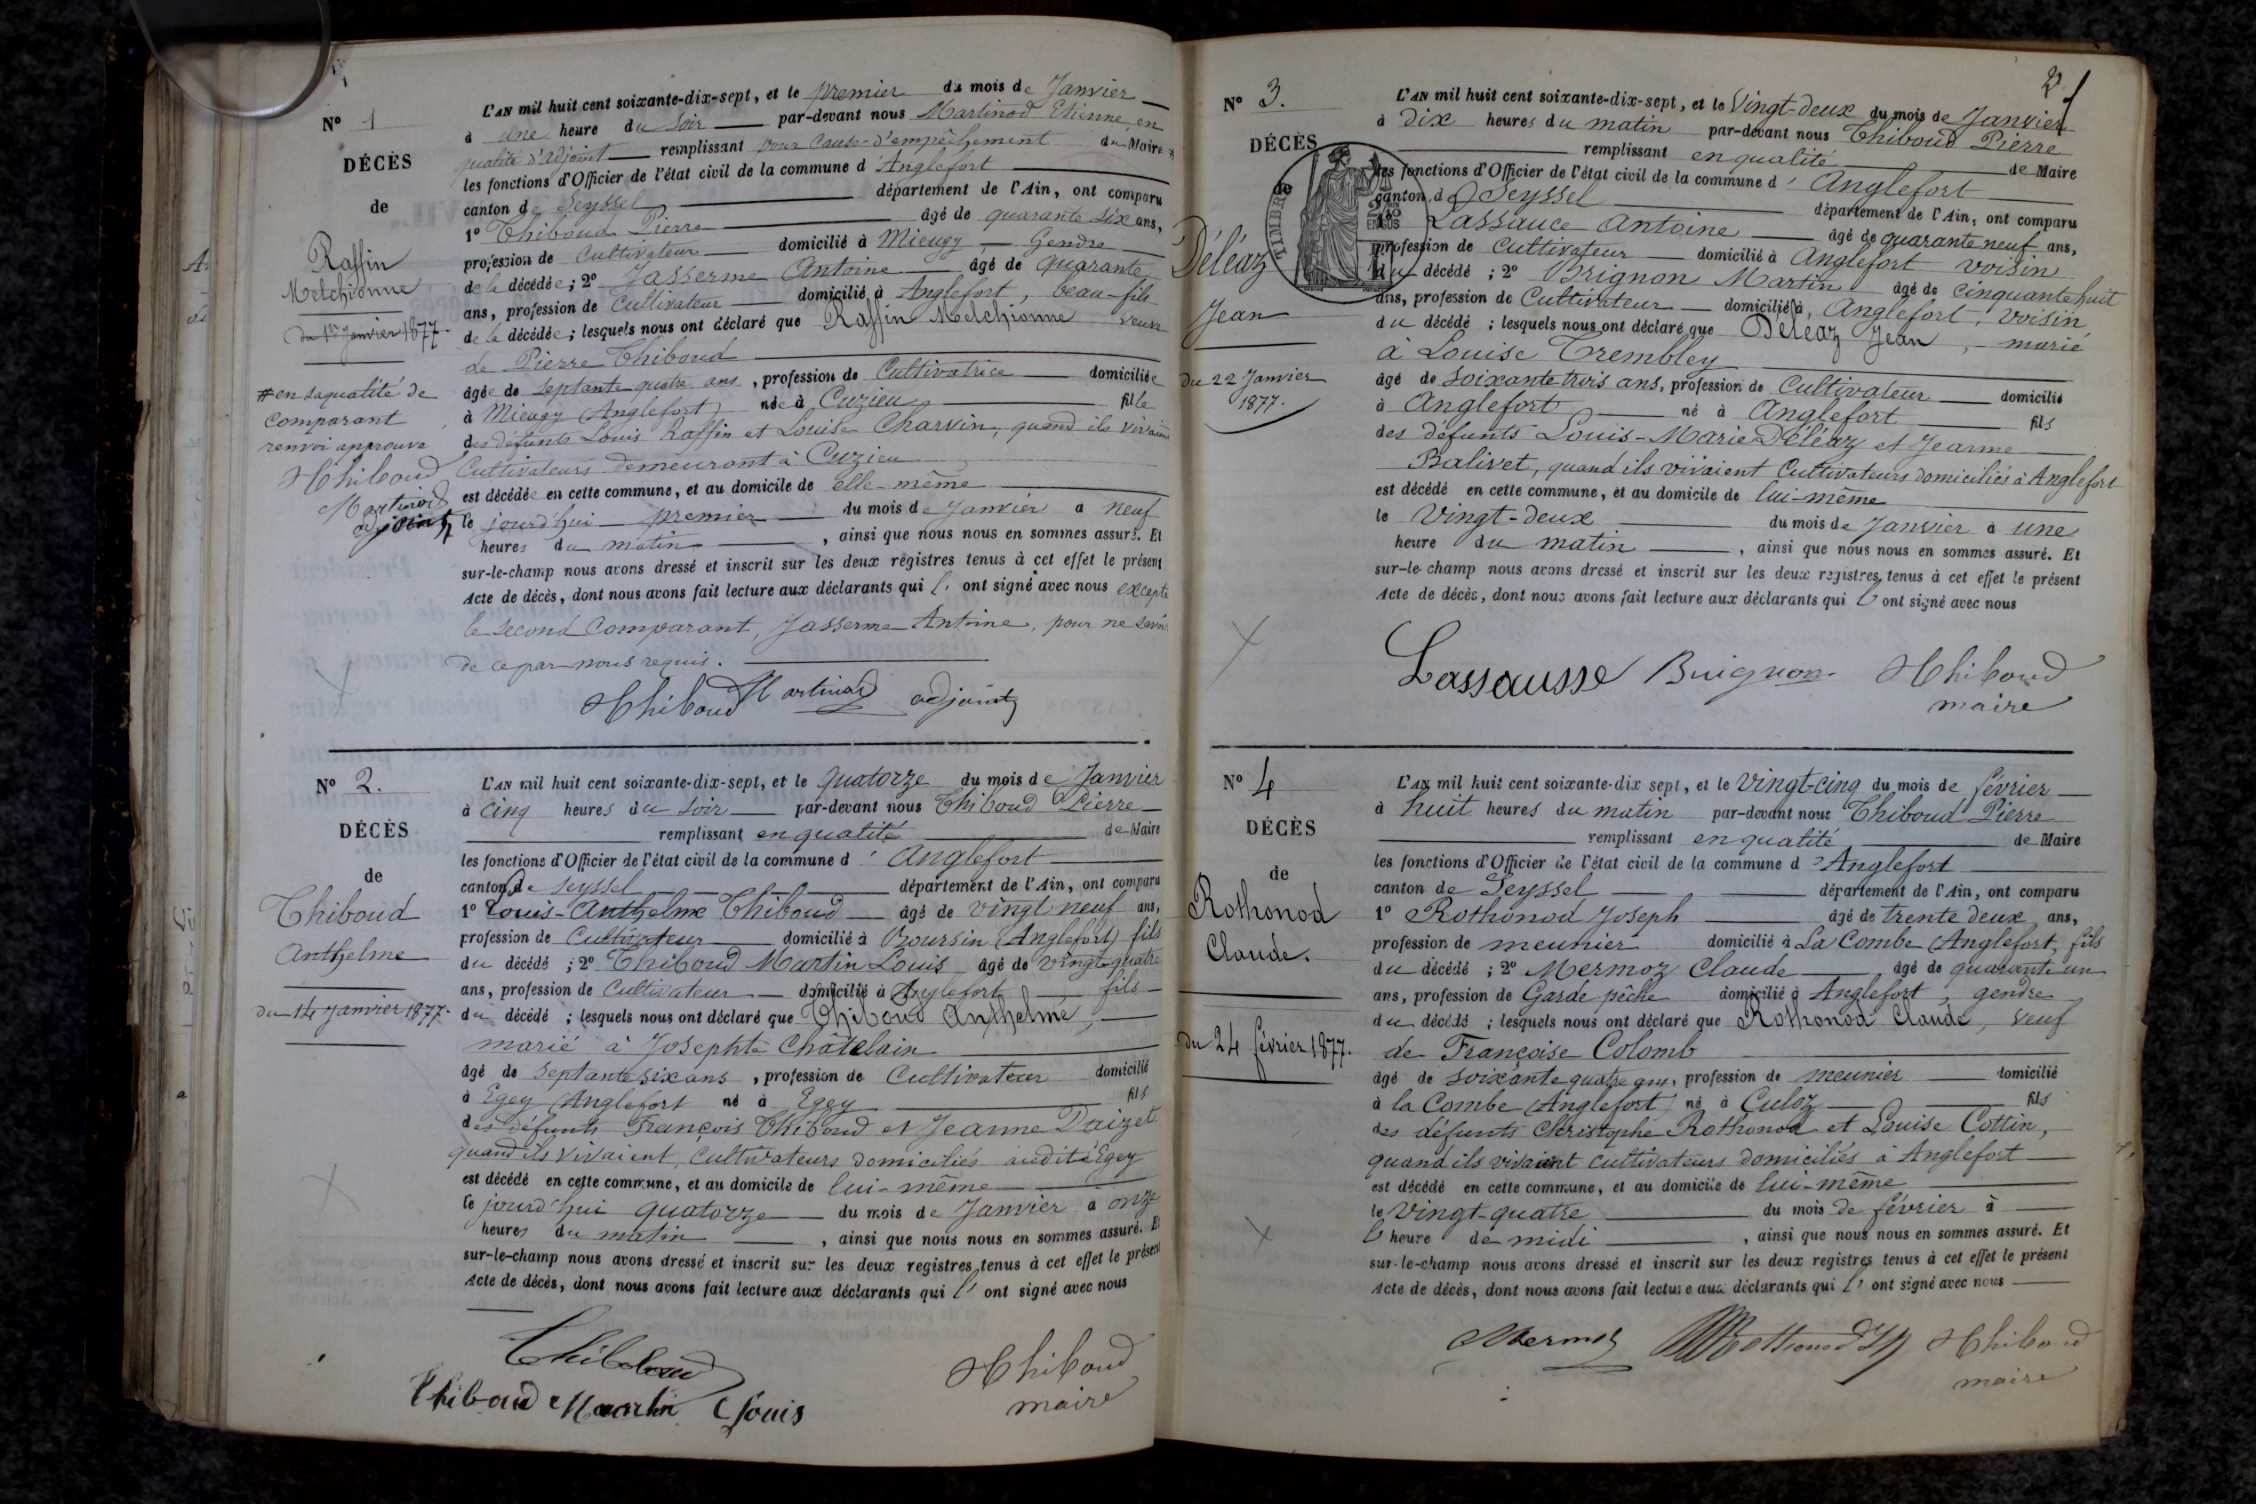 Nº 1
DÉCÈS
de
Raffin
Melchionne
du 1er Janvier 1877.
# en sa qualité de
comparant
renvoi approuvé
Thiboud
Martinod
adjoint
L'AN mil huit cent soixante-dix-sept, et le premier du mois de Janvier
à une heure du soir par-devant nous Martinod Etienne, en
qualité d'adjoint remplissant pour cause d'empêchement du Maire #
les fonctions d'Officier de l'état civil de la commune d'Anglefort
canton de Seyssel département de l'Ain, ont comparu
1º Thiboud Pierre âgé de quarante six ans,
profession de Cultivateur domicilié à Mieugy, Gendre
de la décédée; 2º Jasserme Antoine âgé de quarante
ans, profession de Cultivateur domicilié à Anglefort, beau-fils
de la décédée; lesquels nous ont déclaré que Raffin Melchionne veuve
de Pierre Thiboud
âgée de septante quatre ans, profession de Cultivatrice domiciliée
à Mieugy (Anglefort) née à Cuzieu fille
des défunts Louis Raffin et Louise Charvin, quand ils vivaient
Cultivateurs demeurant à Cuzieu
est décédée en cette commune, et au domicile de elle-même
le jourd'hui premier du mois de Janvier à neuf
heures du matin, ainsi que nous nous en sommes assuré. Et
sur-le-champ nous avons dressé et inscrit sur les deux registres tenus à cet effet le présent
Acte de décès, dont nous avons fait lecture aux déclarants qui l' ont signé avec nous excepté
le second Comparant, Jasserme Antoine, pour ne savoir
de ce par nous requis.
Thiboud Martinod adjoint
Nº 2.
DÉCÈS
de
Thiboud
Anthelme
du 14 Janvier 1877.
L'AN mil huit cent soixante-dix-sept, et le quatorze du mois de Janvier
à cinq heures du soir par-devant nous Thiboud Pierre
remplissant en qualité de Maire
les fonctions d'Officier de l'état civil de la commune d'Anglefort
canton de Seyssel département de l'Ain, ont comparu
1º Louis-Anthelme Thiboud âgé de vingt neuf ans,
profession de Cultivateur domicilié à Voursin (Anglefort) fils
du décédé; 2º Thiboud Martin Louis âgé de vingt-quatre
ans, profession de Cultivateur domicilié à Anglefort fils
du décédé; lesquels nous ont déclaré que Thiboud Anthelme,
marié à Josephte Chatelain
âgé de septante six ans, profession de Cultivateur domicilié
à Egey (Anglefort né à Egey fils
des défunts François Thiboud et Jeanne Daizet
quand ils vivaient, cultivateurs domiciliés audit Egey
est décédé en cette commune, et au domicile de lui-même
le jourd'hui quatorze du mois de Janvier à onze
heures du matin, ainsi que nous nous en sommes assuré. Et
sur-le-champ nous avons dressé et inscrit sur les deux registres tenus à cet effet le présent
Acte de décès, dont nous avons fait lecture aux déclarants qui l' ont signé avec nous
Thiboud
Thiboud Martin Louis
Thiboud
maire
2
Nº 3.
DÉCÈS
de
TIMBRE
Déléaz
Jean
du 22 Janvier
1877.
L'AN mil huit cent soixante-dix-sept, et le Vingt-deux du mois de Janvier
à dix heures du matin par-devant nous Thiboud Pierre
remplissant en qualité de Maire
les fonctions d'Officier de l'état civil de la commune d'Anglefort
canton de Seyssel département de l'Ain, ont comparu
Lassauce Antoine âgé de quarante neuf ans,
profession de Cultivateur domicilié à Anglefort voisin
du décédé; 2º Brignon Martin âgé de cinquante huit
ans, profession de Cultivateur domicilié à Anglefort, voisin
du décédé; lesquels nous ont déclaré que Déléaz Jean, marié
à Louise Trembley
âgé de soixante trois ans, profession de Cultivateur domicilié
à Anglefort né à Anglefort fils
des défunts Louis-Marie Déléaz et Jeanne
Balivet, quand ils vivaient Cultivateurs domiciliés à Anglefort
est décédé en cette commune, et au domicile de lui-même
le Vingt-deux du mois de Janvier à une
heure du matin, ainsi que nous nous en sommes assuré. Et
sur-le-champ nous avons dressé et inscrit sur les deux registres tenus à cet effet le présent
Acte de décès, dont nous avons fait lecture aux déclarants qui l' ont signé avec nous
Lassausse Buignon Thiboud
maire
Nº 4
DÉCÈS
de
Rothonod
Claude.
du 24 février 1877.
L'AN mil huit cent soixante-dix sept, et le Vingt-cinq du mois de février
à huit heures du matin par-devant nous Thiboud Pierre
remplissant en qualité de Maire
les fonctions d'Officier de l'état civil de la commune d'Anglefort
canton de Seyssel département de l'Ain, ont comparu
1º Rothonod Joseph âgé de trente deux ans,
profession de meunier domicilié à La Combe (Anglefort, fils
du décédé; 2º Mermoz Claude âgé de quarante un
ans, profession de Garde pêche domicilié à Anglefort, gendre
du décédé; lesquels nous ont déclaré que Rothonod Claude, veuf
de Françoise Colomb
âgé de soixante quatre ans, profession de meunier domicilié
à la Combe (Anglefort) né à Culoz fils
des défunts Christophe Rothonod et Louise Cottin,
quand ils vivaient cultivateurs domiciliés à Anglefort
est décédé en cette commune, et au domicile de lui-même
le Vingt-quatre du mois de février à
l'heure de midi, ainsi que nous nous en sommes assuré. Et
sur-le-champ nous avons dressé et inscrit sur les deux registres tenus à cet effet le présent
Acte de décès, dont nous avons fait lecture aux déclarants qui l' ont signé avec nous
Mermoz Rothonod Thiboud
maire